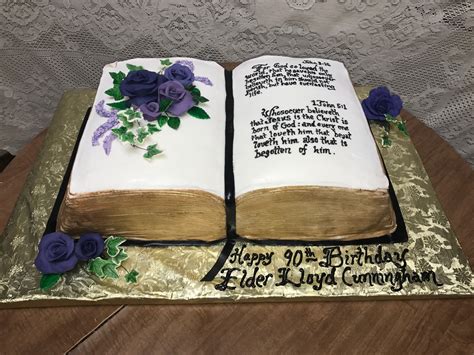 John 3:16
For God so loved the
world, that he gave his only
begotten Son, that whosoever
believeth in him should not
perish, but have everlasting
life.
1 John 5:1
Whosoever believeth
that Jesus is the Christ is
born of God: and every one
that loveth him that begat
loveth him also that is
begotten of him.
Happy 90th Birthday
Elder Lloyd Cunningham